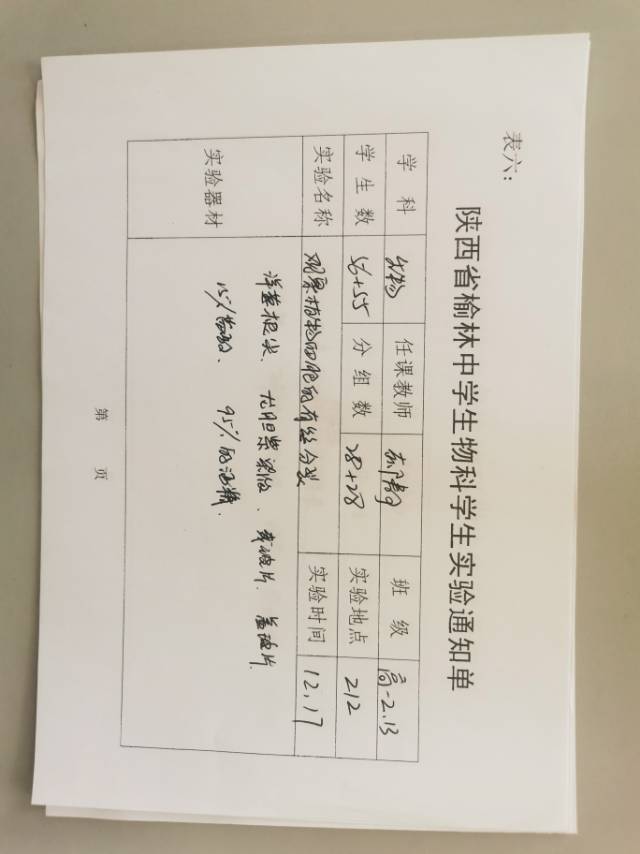 表六:
陕西省榆林中学生物科学生实验通知单
学 科 生物 任课教师 班 级 高一2.13
学 生 数 56+55 分 组 数 28+28 实验地点 212
实验名称 观察植物细胞的有丝分裂 实验时间 12.17
实验器材 洋葱根尖、龙胆紫染液、载玻片、盖玻片
15%盐酸、95%的酒精.
第 页